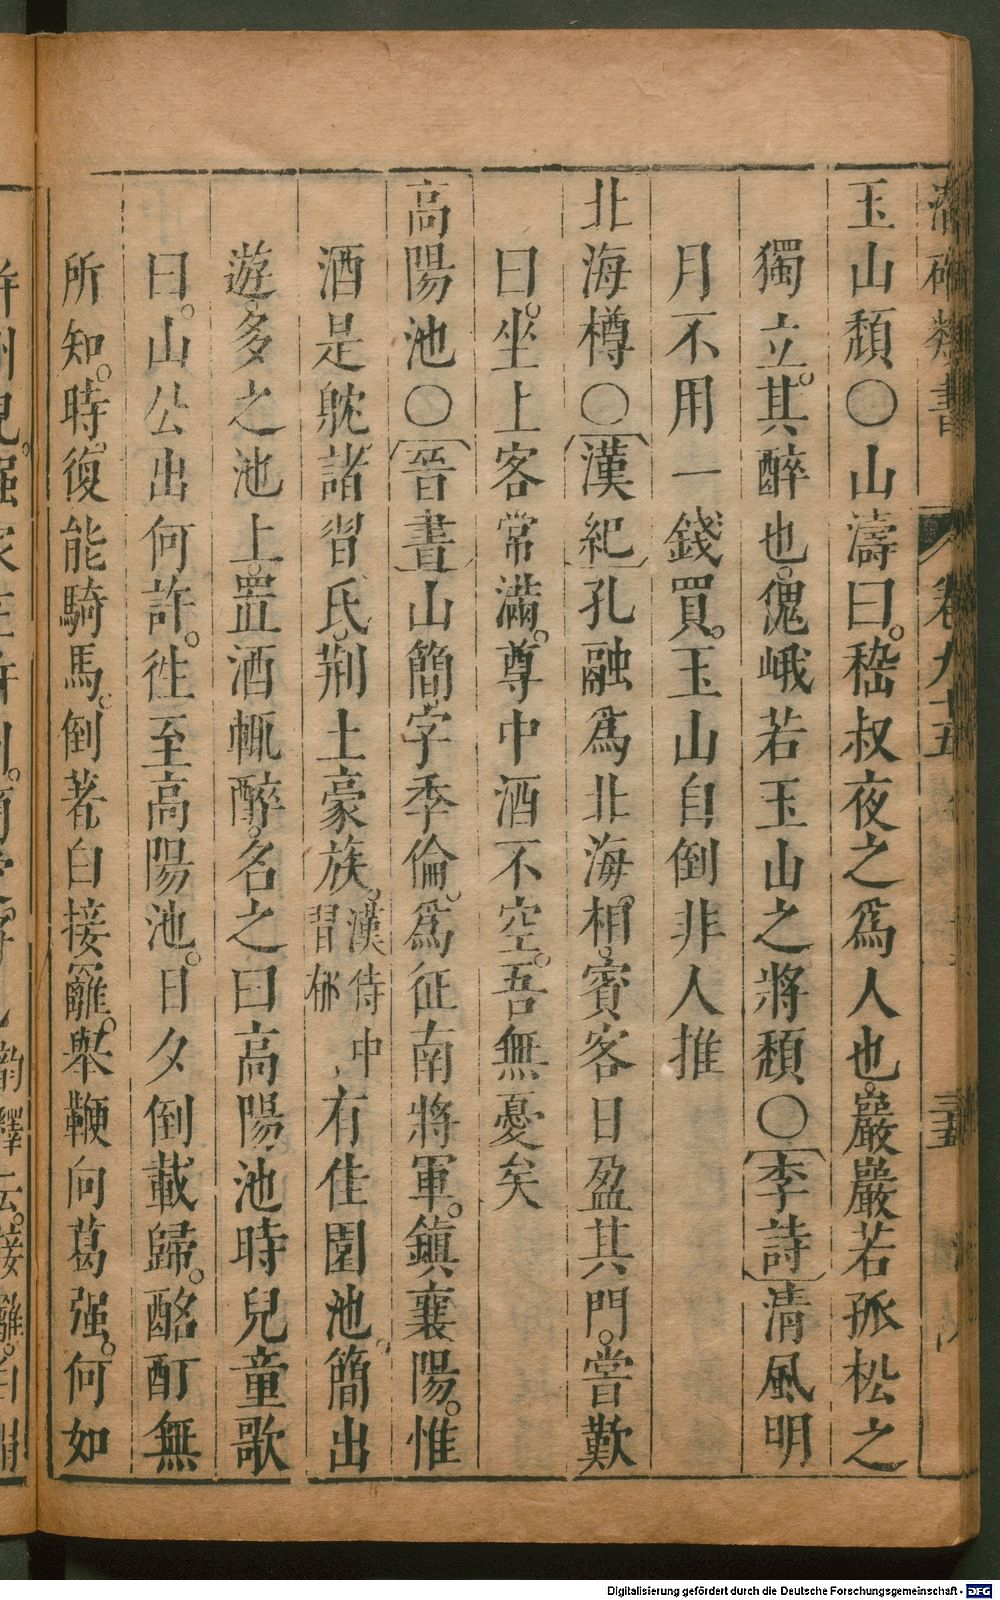 潛確類書 卷九十五 三五
玉山頹〇山濤曰。嵇叔夜之爲人也。巖巖若孤松之
獨立。其醉也。傀峨若玉山之將頹〇李詩清風明
月不用一錢買。玉山自倒非人推
北海樽〇漢紀孔融爲北海相。賓客日盈其門。嘗歎
曰。坐上客常滿。尊中酒不空。吾無憂矣
高陽池〇晉書山簡字季倫。爲征南將軍。鎮襄陽。惟
酒是躭。諸習氏。荆土豪族。漢侍中習郁有佳園池。簡出
遊。多之池上。置酒輒醉。名之曰高陽池時兒童歌
曰。山公出何許。徃至高陽池。日夕倒載歸。酩酊無
所知。時。復能騎馬。倒著白接䍦。舉鞭向葛强。何如
并州兒。强家在并州。簡愛
Digitalisierung gefördert durch die Deutsche Forschungsgemeinschaft - DFG